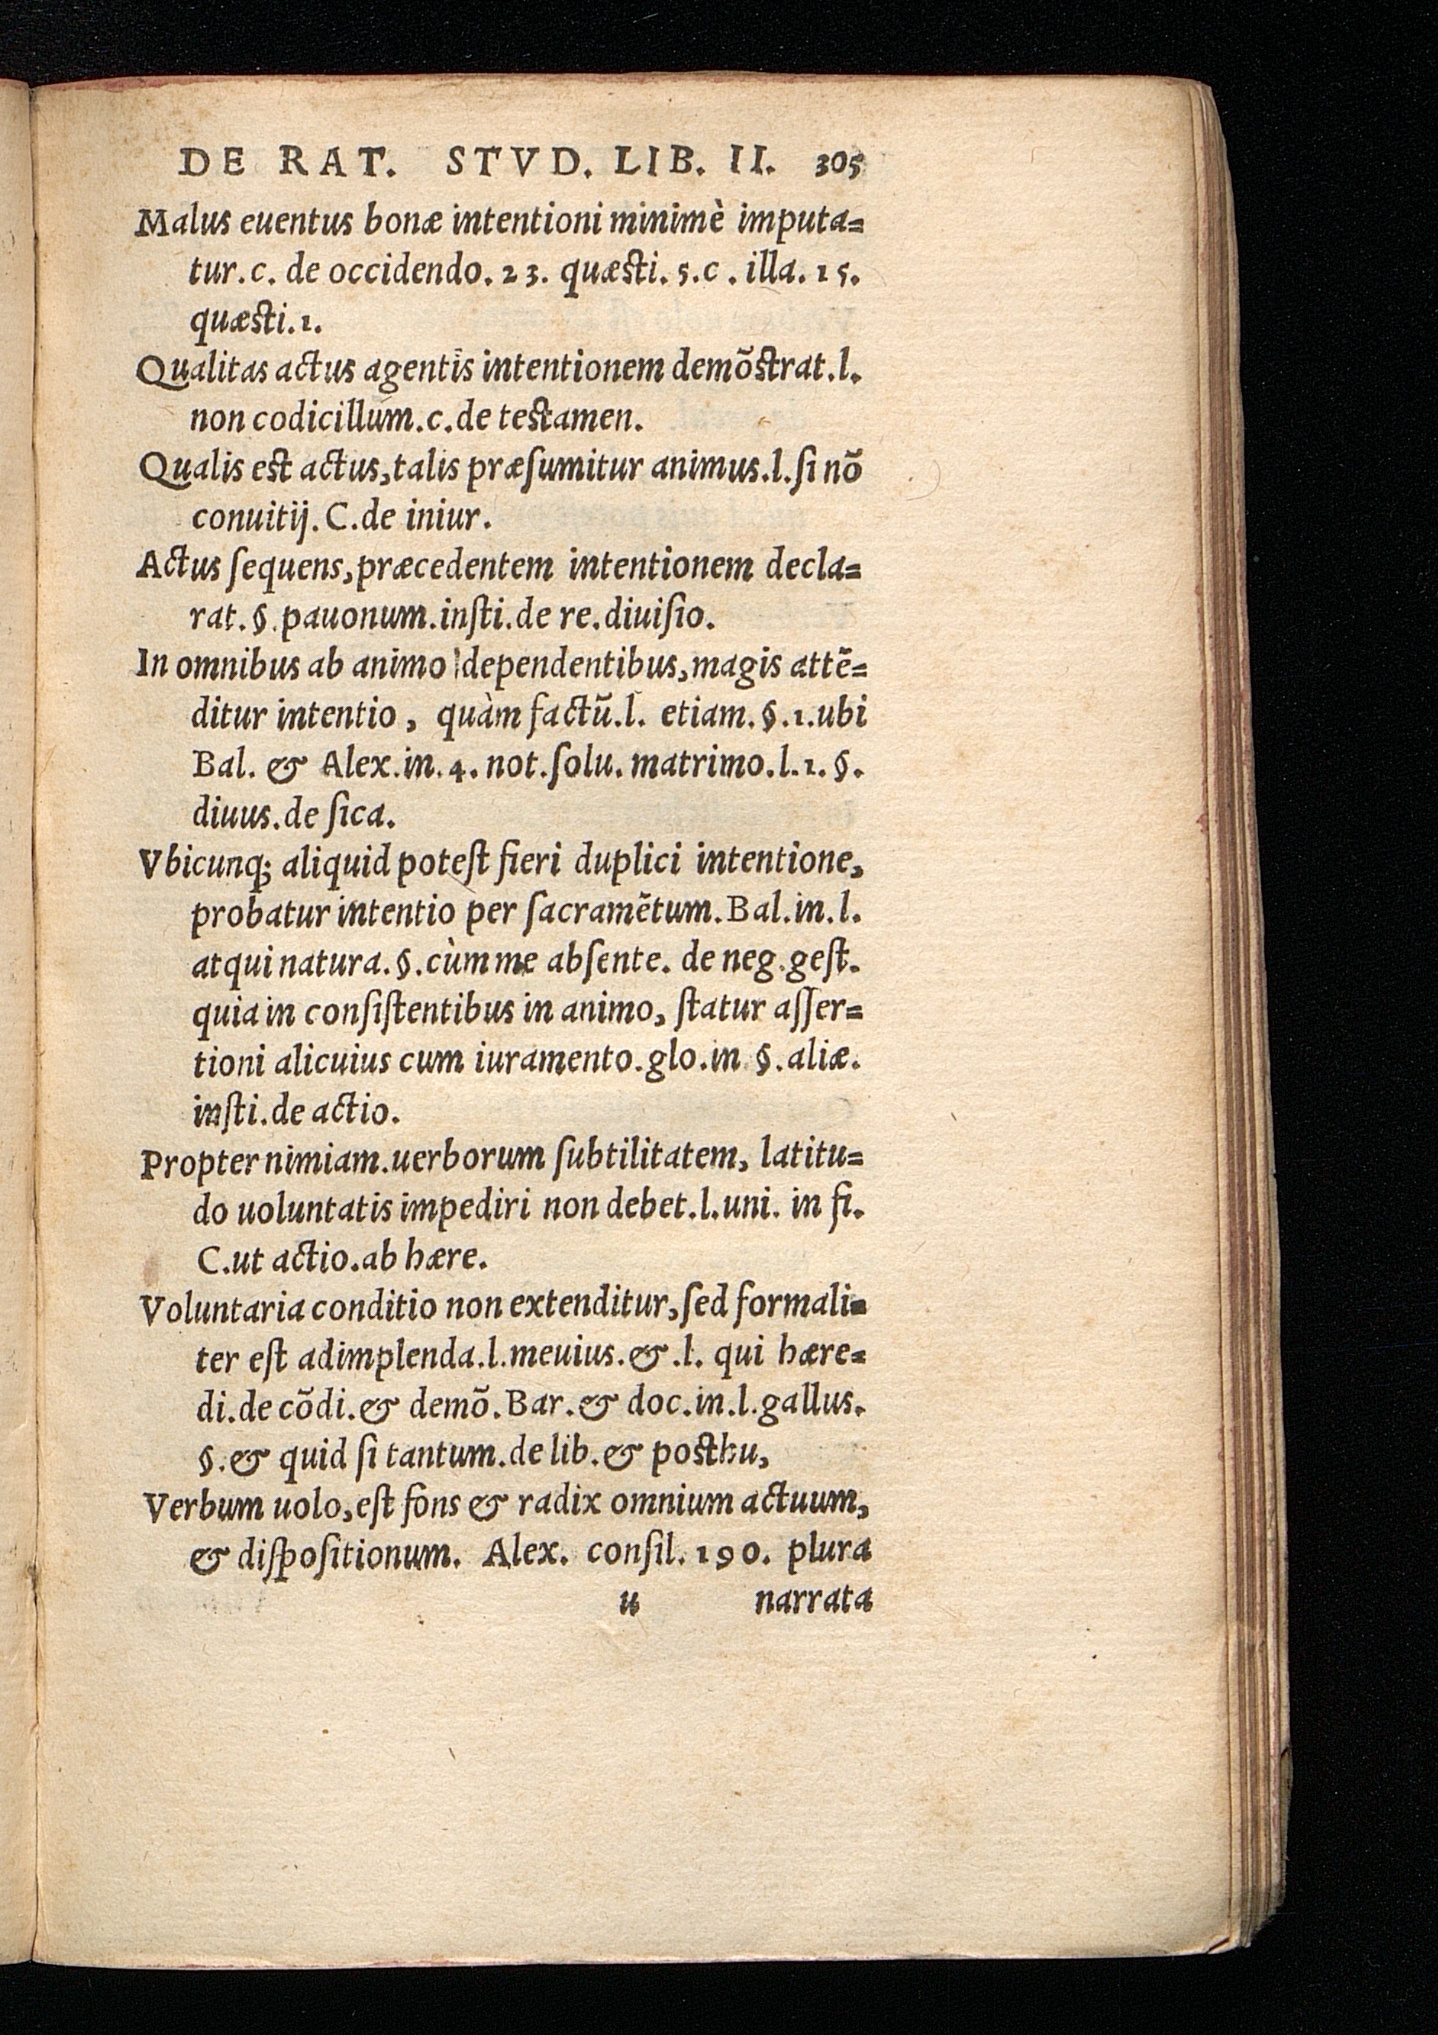 DE RAT. STVD. LIB. II. 305
Malus euentus bonæ intentioni minimè imputa=
tur.c. de occidendo. 23. quæsti. 5.c. illa. 15.
quæsti.1.
Qualitas actus agentis intentionem demõstrat.l.
non codicillum.c.de testamen.
Qualis est actus,talis præſumitur animus.l.ſi nõ
conuitij. C.de iniur.
Actus ſequens,præcedentem intentionem decla=
rat.§.pauonum.inſti.de re.diuiſio.
In omnibus ab animo dependentibus,magis attẽ=
ditur intentio, quàm factũ.l. etiam.§.1.ubi
Bal. & Alex.in.4. not.ſolu. matrimo.l.1.§.
diuus.de ſica.
Vbicunq; aliquid poteſt fieri duplici intentione,
probatur intentio per ſacramẽtum.Bal.in.l.
atqui natura.§.cùm me abſente. de neg.geſt.
quia in conſiſtentibus in animo, ſtatur aſſer=
tioni alicuius cum iuramento.glo.in §.aliæ.
inſti.de actio.
Propter nimiam.uerborum ſubtilitatem, latitu=
do uoluntatis impediri non debet.l.uni. in fi.
C.ut actio.ab hære.
Voluntaria conditio non extenditur,ſed formali=
ter eſt adimplenda.l.meuius.&.l. qui hære=
di.de cõdi.& demõ.Bar.& doc.in.l.gallus.
§.& quid ſi tantum.de lib.& posthu,
Verbum uolo,eſt fons & radix omnium actuum,
& diſpoſitionum. Alex. conſil.190. plura
u narrata